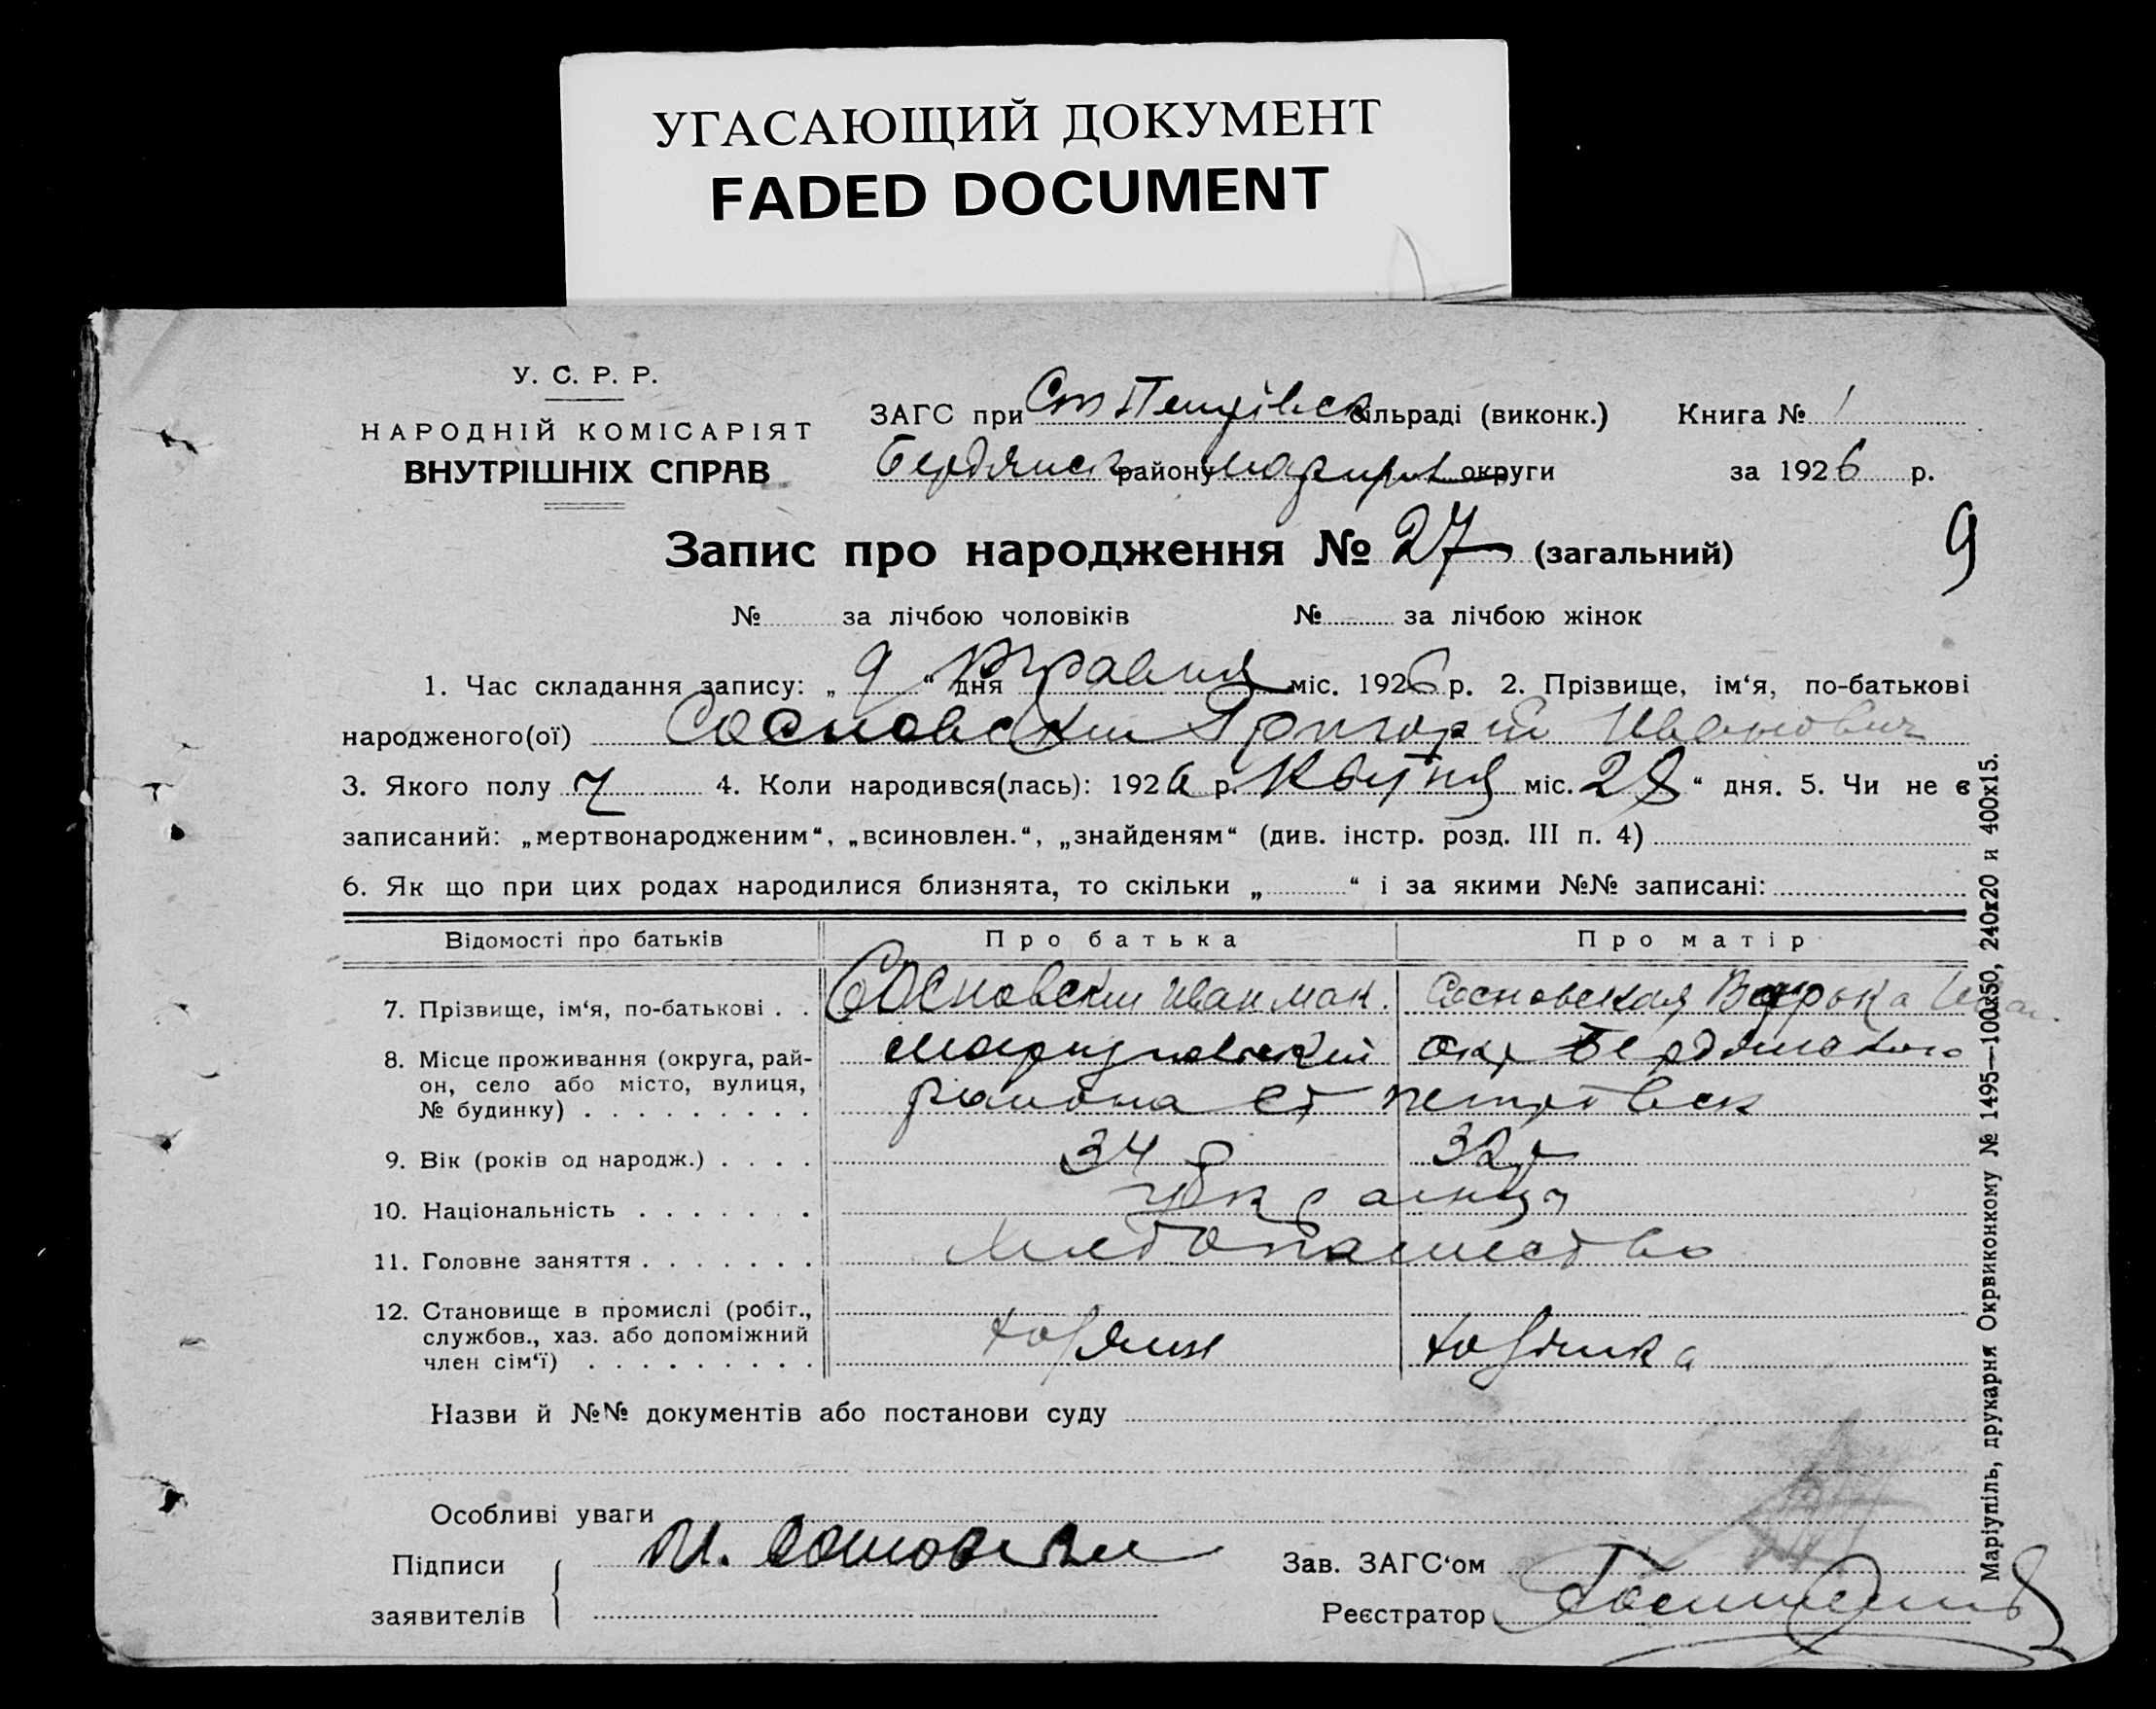 УГАСАЮЩИЙ ДОКУМЕНТ
FADED DOCUMENT
У. С. Р. Р.
НАРОДНІЙ КОМІСАРІЯТ
ВНУТРІШНІХ СПРАВ
ЗАГС при Ст Петрівск сільраді (виконк.) Книга № 1
Бердянск району Маріуп округи за 1926 р.
Запис про народження № 27 (загальний)
9
№ за лічбою чоловіків № за лічбою жінок
1. Час складання запису: „ 9 “ дня Травня міс. 1926 р. 2. Прізвище, ім‘я, по-батькові
народженого(ої) Сосновский Григорий Иванович
3. Якого полу ч 4. Коли народився(лась): 1926 р. Квітня міс. 28 “ дня. 5. Чи не є
записаний: „мертвонародженим“, „всиновлен.“, „знайденям“ (див. інстр. розд. III п. 4)
6. Як що при цих родах народилися близнята, то скільки „ “ і за якими №№ записані:
Відомості про батьків Про батька Про матір
7. Прізвище, ім‘я, по-батькові . . Сосновский Иван Мак. Сосновская Варька Иван.
8. Місце проживання (округа, рай- Мариупольский окр Бердянского
он, село або місто, вулиця,
№ будинку) . . . . . . . . . района ст петровск
9. Вік (років од народж.) . . . . 34 32
10. Національність . . . . . . . украинцы
11. Головне заняття . . . . . . . Хлебопашество
12. Становище в промислі (робіт.,
службов., хаз. або допоміжний
член сім‘ї) . . . . . . . . . хозяин хозяика
Назви й №№ документів або постанови суду
Особливі уваги
Підписи И. Сосновский Зав. ЗАГС‘ом
заявителів Реєстратор
Маріупіль, друкарня Окрвиконкому № 1495—100х50, 240х20 и 400х15.